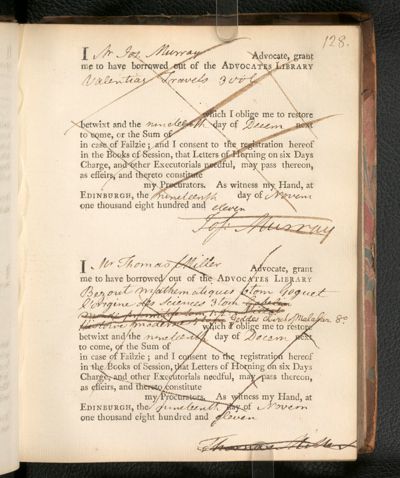 128.
I Mr Jos Murray Advocate, grant
me to have borrowed out of the ADVOCATES LIBRARY
Valentias Travels 3 vols
which I oblige me to restore
betwixt and the nineteenth day of Decem next
to come, or the Sum of
in case of Failzie; and I consent to the registration hereof
in the Books of Session, that Letters of Horning on six Days
Charge, and other Executorials needful, may pass thereon,
as effeirs, and thereto constitute
my Procurators. As witness my Hand, at
EDINBURGH, the nineteenth day of Novem
one thousand eight hundred and eleven
Jos. Murray
I Mr Thomas Miller Advocate, grant
me to have borrowed out of the ADVOCATES LIBRARY
Bezout Mathematiques tom Goguet
L'origine des Sciences 3 tom
moderne Geddes 8o
which I oblige me to restore
betwixt and the nineteenth day of Decem next
to come, or the Sum of
in case of Failzie; and I consent to the registration hereof
in the Books of Session, that Letters of Horning on six Days
Charge, and other Executorials needful, may pass thereon,
as effeirs, and thereto constitute
my Procurators. As witness my Hand, at
EDINBURGH, the nineteenth day of Novem
one thousand eight hundred and eleven
Thomas Miller